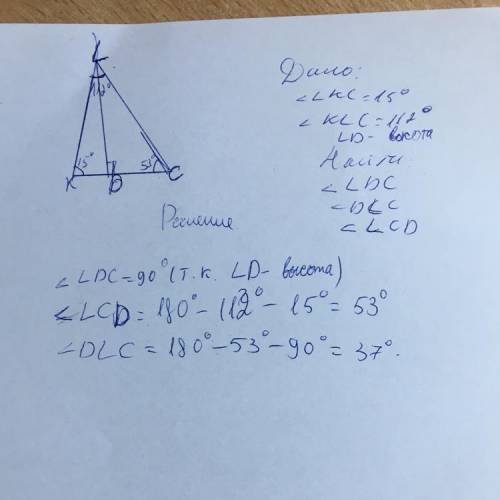 L
112°
15°
53°
K
D
C
Дано:
∠LKC = 15°
∠KLC = 112°
LD - высота
Найти
∠LDC
∠DLC
∠LCD
Решение
∠LDC = 90° (т.к. LD - высота)
∠LCD = 180° - 112° - 15° = 53°
∠DLC = 180° - 53° - 90° = 37°.